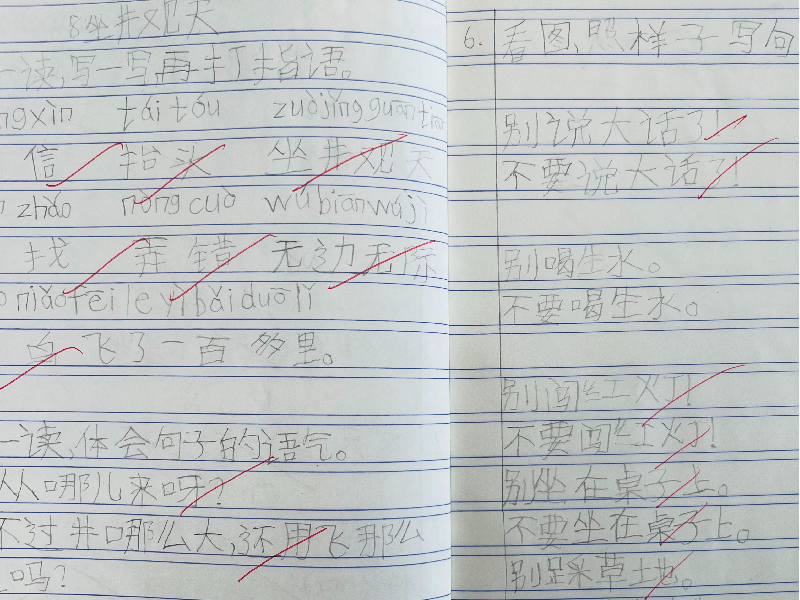 8坐井观天
一读,写一写再打指语。
ngxìn tái tóu zuòjǐngguāntiān
信 抬头 坐井观天
zhǎo nòngcuò wúbiānwújì
找 弄错 无边无际
niǎofēileyìbǎiduōlǐ
鸟飞了一百多里。
一读,体会句子的语气。
从哪儿来呀?
不过井口哪么大,还用飞那么
吗?
6. 看图,照样子写句
别说大话了!
不要说大话了!
别喝生水。
不要喝生水。
别闯红灯!
不要闯红灯!
别坐在桌子上。
不要坐在桌子上。
别踩草地。